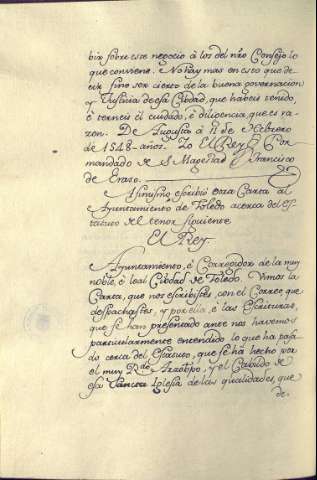 bir sobre este negocio à los del nr̃o Consejo lo
que conviene. No hay mas en esto que de-
cir sino ser cierto de la buena governacion
y Justicia de essa Ciudad, que haveis tenido,
è terneis el cuidado, è diligencia que es ra-
zon. De Augusta à 11 de Febrero
de 1548 años. Yo El Rey Por
mandado de S. Magestad Francisco
de Eraso.
Assimismo escribiò otra Carta al
Ayuntamiento de Toledo acerca del es-
tatuto del tenor siguiente
El Rey.
Ayuntamiento, è Corregidor de la muy
noble, è leal Ciudad de Toledo. Vimos la
Carta, que nos escribisteis, con el Correo que
despachastes, y por ella, è las Escrituras,
que se han presentado ante nos havemos
particularmente entendido lo que ha pasa-
do cerca del Estatuto, que se hà hecho por
el muy R.do Arzobpo, y el Cabildo de
essa Sancta Iglesia de las qualidades, que
de-